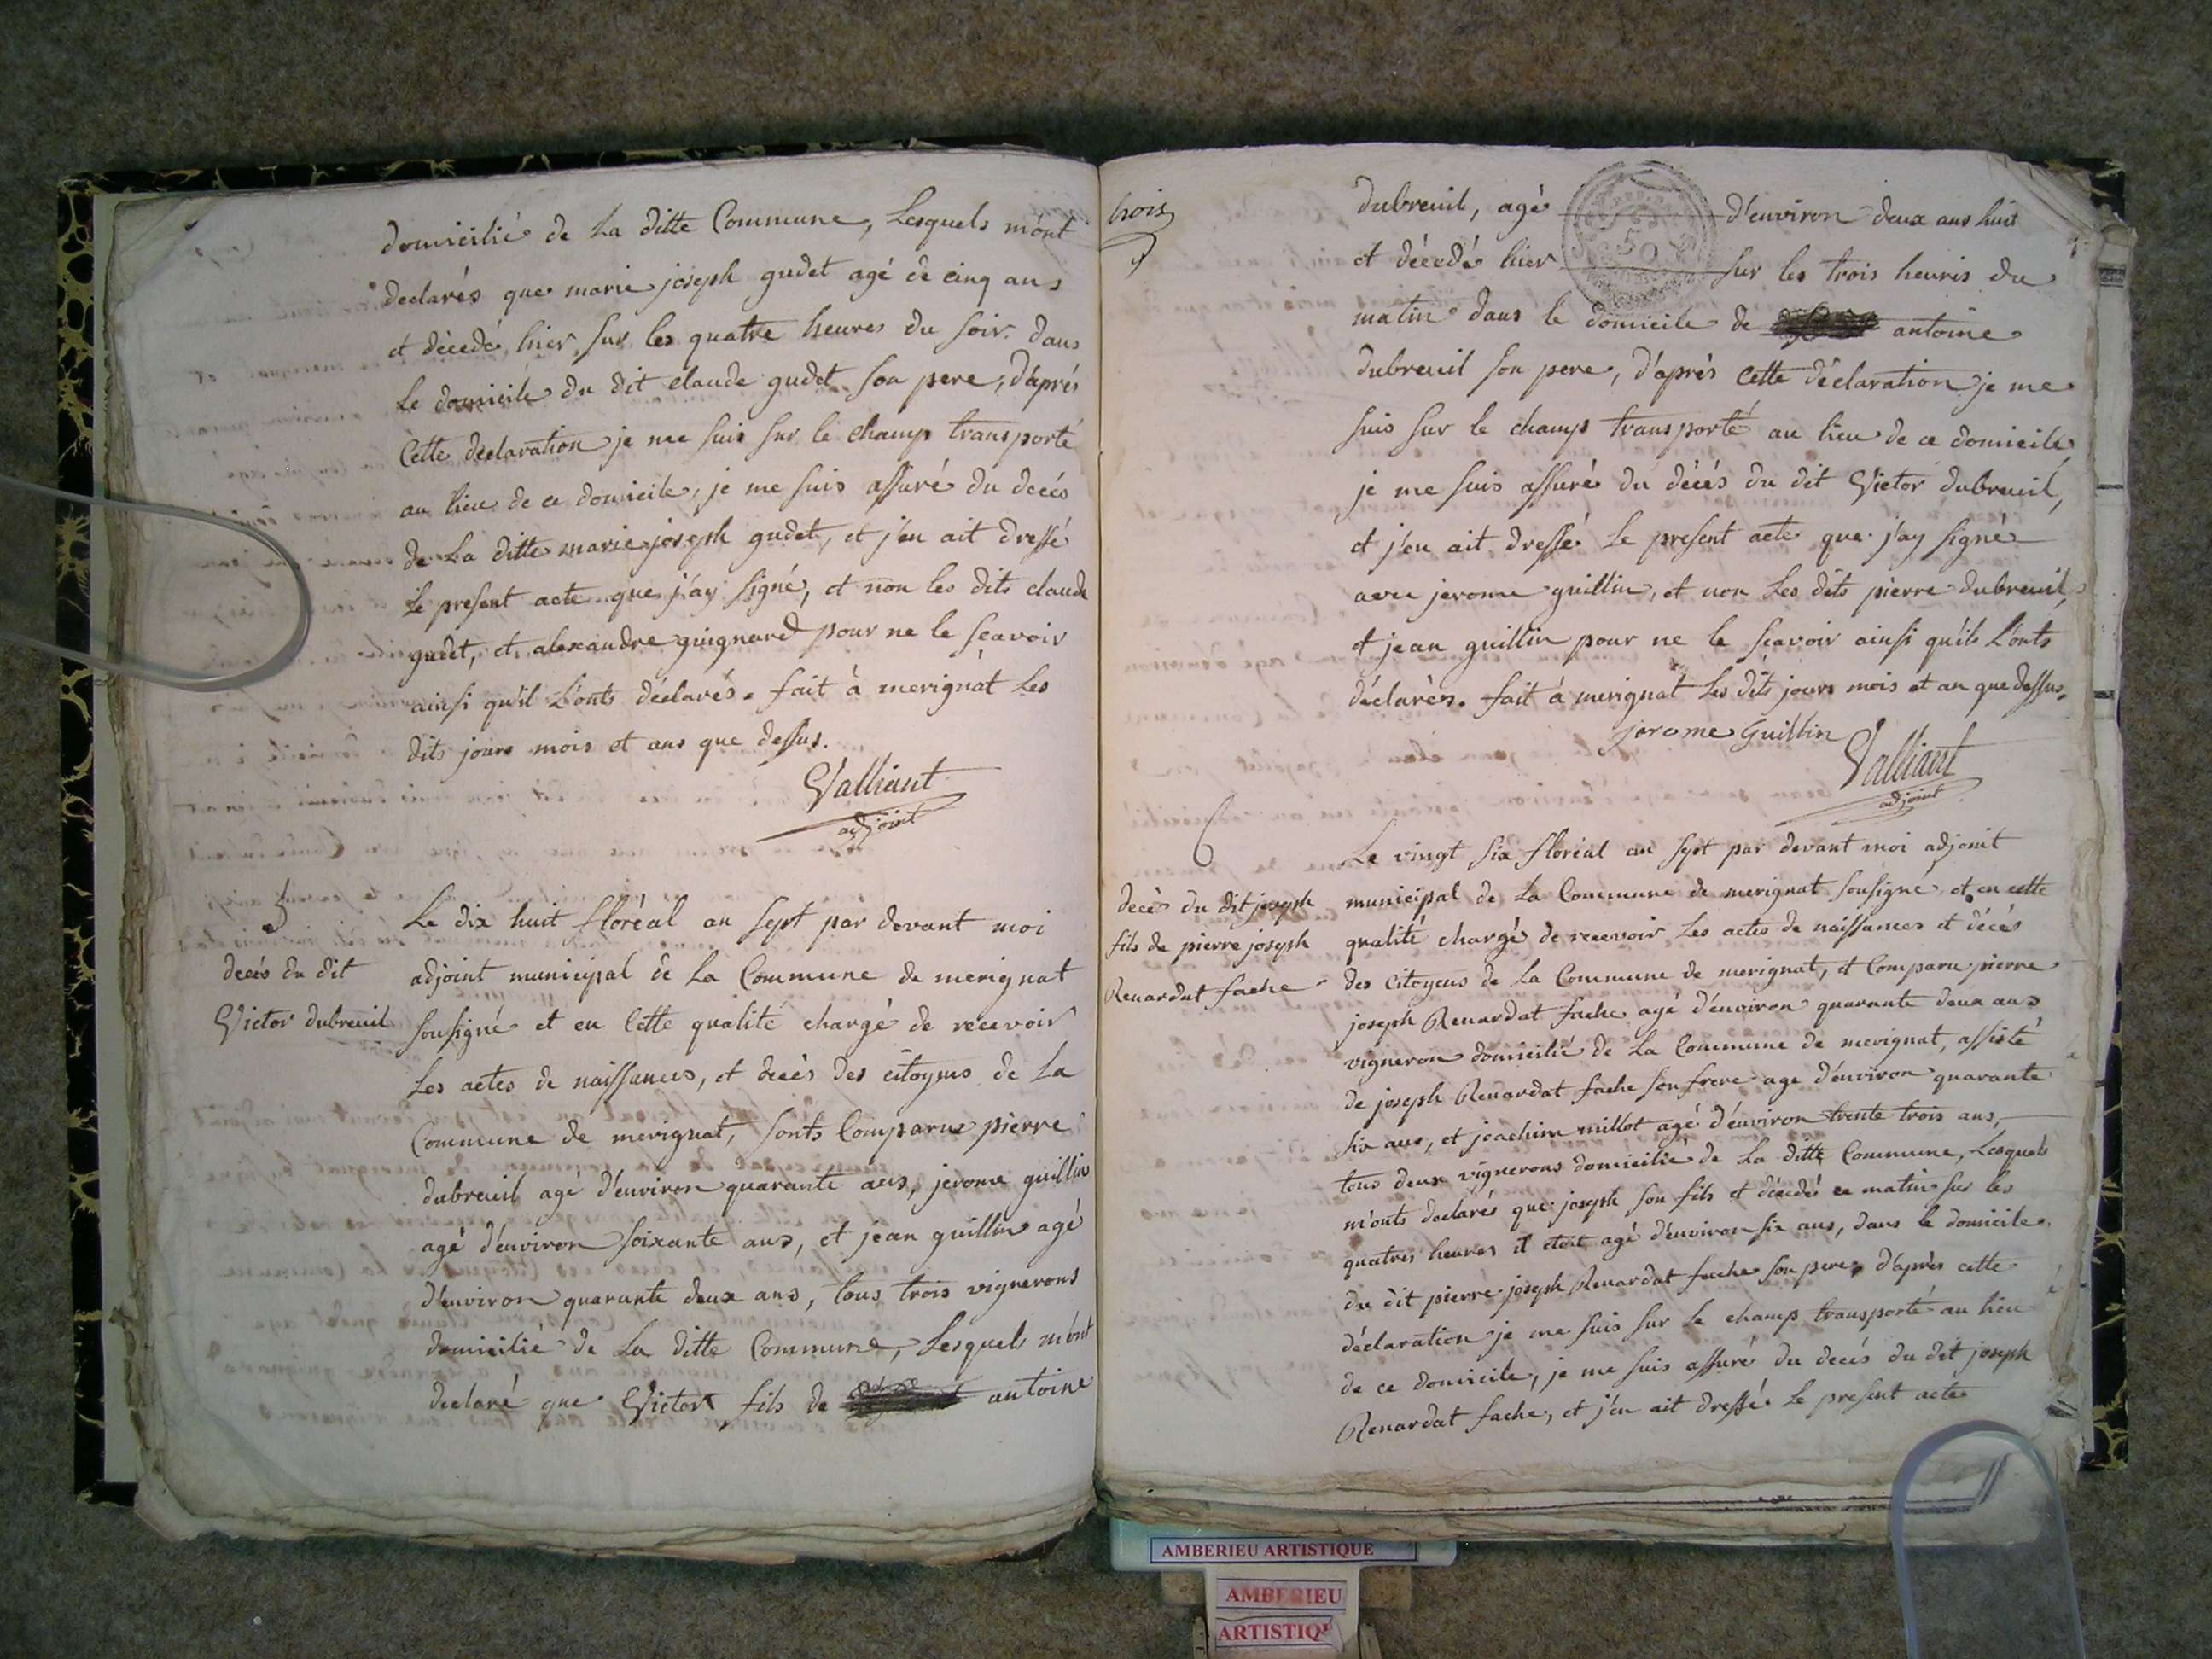 domicilié de La ditte Commune, Lesquels m'ont
declarés que marie joseph gudet agé de cinq ans
et décedé hier sur les quatre heures du soir dans
Le domicile du dit claude gudet son pere, d'après
Cette declaration je me suis sur le champ transporté
au lieu de ce domicile, je me suis assuré du decés
de La ditte marie joseph gudet, et j'en ait dressé
Le present acte que j'ay signé, et non les dits claude
gudet, et alexandre guignard pour ne le sçavoir
ainsi qu'il L'onts déclarés. fait à merignat Les
dits jours mois et ans que dessus.
Valliant
adjoint
5
decés du dit
Victor dubreuil
Le dix huit floréal an sept par devant moi
adjoint municipal de La Commune de merignat
sousigné et en Cette qualité chargé de recevoir
Les actes de naissances, et decès des citoyens de La
Commune de merignat, sonts Comparus pierre
dubreuil agé d'environ quarante ans, jerome guillin
agé d'environ soixante ans, et jean guillin agé
d'environ quarante deux ans, tous trois vignerons
domicilié de La ditte Commune, Lesquels m'ont
declaré que Victor fils de antoine
trois
dubreuil, agé d'environ deux ans huit
50
et décedé hier sur les trois heures du
matin dans le domicile de antoine
dubreuil son pere, d'après cette déclaration je me
suis sur le champ transporté au lieu de ce domicile
je me suis assuré du décés du dit Victor dubreuil,
et j'en ait dressé Le present acte que j'ay signé
avec jerome guillin, et non Les dits pierre dubreuil,
et jean guillin pour ne le sçavoir ainsi qu'ils L'onts
déclarés. fait à merignat Les dits jours mois et an que dessus.
jerome Guillin
Valliant
adjoint
6
decé du dit joseph
fils de pierre joseph
Renardat fache
Le vingt six floréal an sept par devant moi adjoint
municipal de La Commune de merignat sousigné et en cette
qualité chargé de recevoir Les actes de naissances et décès
des citoyens de La Commune de merignat, et Comparu pierre
joseph Renardat fache agé d'environ quarante deux ans
vigneron domicilié de La Commune de merignat, assisté
de joseph Renardat fache son frere age d'environ quarante
six ans, et joachim millot agé d'environ trente trois ans,
tous deux vignerons domicilié de La ditte Commune, Lesquels
m'onts declarés que joseph son fils et décedé ce matin sur les
quatres heures il etoit agé d'environ six ans, dans le domicile
du dit pierre joseph Renardat fache son pere, d'après cette
déclaration je me suis sur le champ transporté au lieu
de ce domicile, je me suis assuré du decés du dit joseph
Renardat fache, et j'en ait dressé Le present acte
AMBERIEU ARTISTIQUE
AMBERIEU
ARTISTIQU